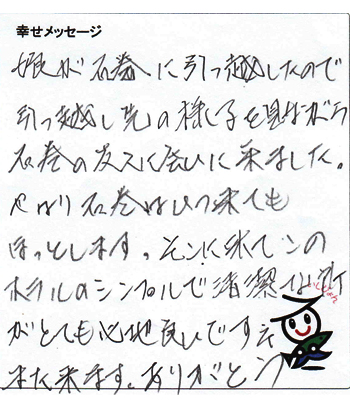 幸せメッセージ
娘が石巻に引っ越したので
引っ越し先の様子を見ながら
石巻の友人に会いに来ました。
やはり石巻はいつ来ても
ほっとします。そんに来てこの
ホテルのシンプルで清潔な
がとても心地良いです
また来ます。ありがとう